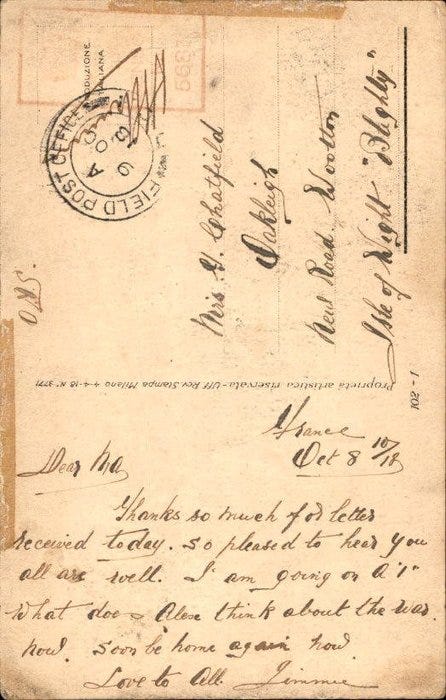 PRODUZIONE
ITALIANA
FIELD POST OFFICE
A
O.A.S.
Mrs G. Chatfield
Oakleigh
New Road Wootton
Isle of Wight "Blighty"
Proprietà artistica riservata - Uff. Rev. Stampa Milano 4-4-18 N° 3771
102 - 1
France
Oct 8 10/18
Dear Ma
Thanks so much for letter
received today. so pleased to hear you
all are well. I am going on A "1"
What does Alese think about the war
now. Soon be home again now.
Love to All. Jimmie